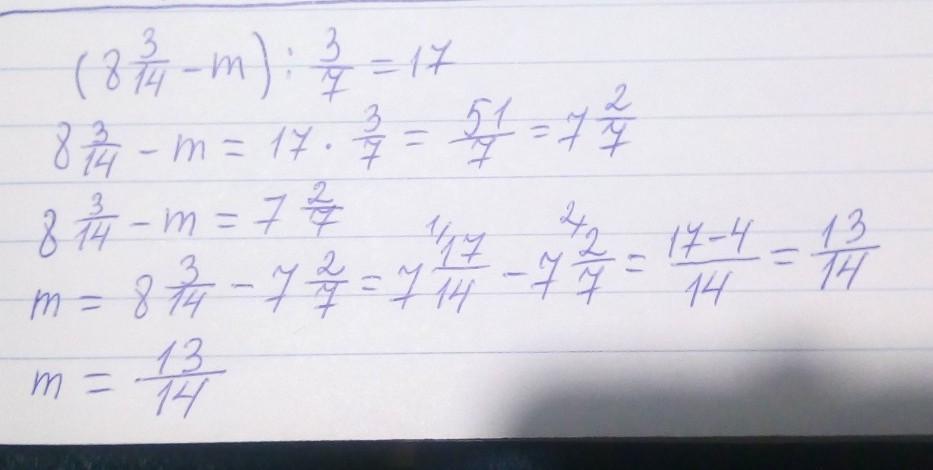 (8 3/14 - m) : 3/7 = 17
8 3/14 - m = 17 · 3/7 = 51/7 = 7 2/7
8 3/14 - m = 7 2/7
m = 8 3/14 - 7 2/7 = 7 1/ 17/14 - 7 2/ 2/7 = 17-4/14 = 13/14
m = 13/14